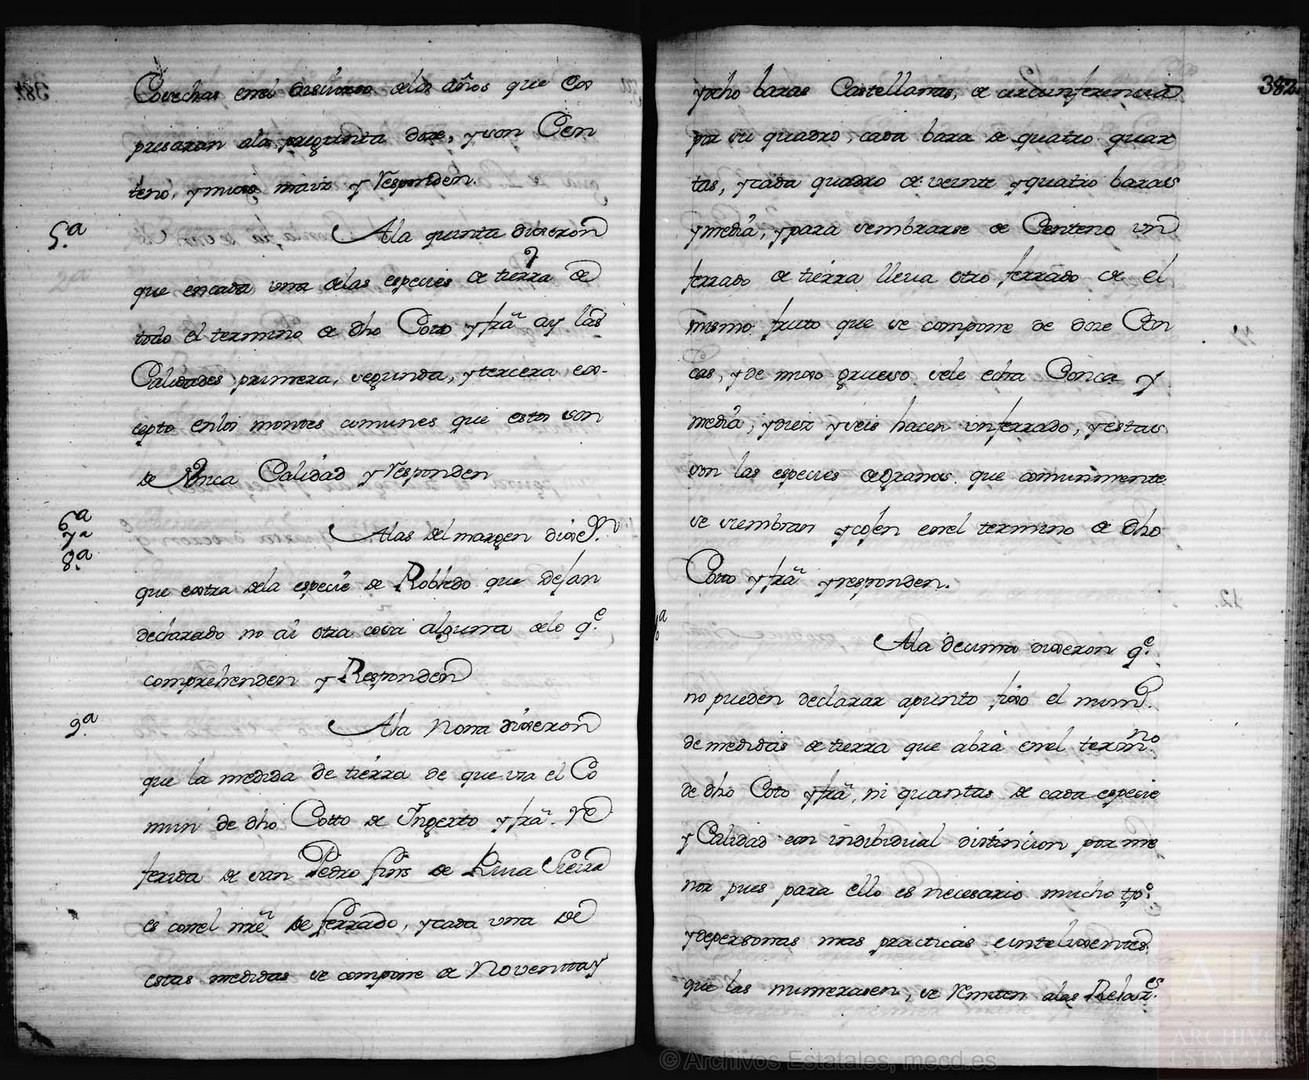 Cosechas enel discurso delos años que ex
presaran ala pregunta doze, y son Cen
teno, y mixo maiz y Responden.
5.ª Ala quinta dixeron
que encada una delas especies de tierra de
todo el termino de dho Coto y frâ ay las
Calidades primera, segunda, y tercera ex-
cepto enlos montes comunes que estos son
de Unica Calidad y Responden
6ª
7ª
8.ª Alas del margen dixer.n
que extra dela especie de Robledo que dejan
declarado no ai otra cosa alguna delo q.e
comprehenden y Responden
9.ª Ala Nona dixeron
que la medida de tierra de que usa el Co
mun de dho Cotto de Ingerto y frâ. Re
ferida de san Pedro fins de Riva Sieira
es conel nre de ferrado, y cada una de
estas medidas se compone de Noventa y
382
ocho baras Castellanas, de circunferencia
por su quadro, cada bara de quatro quar
tas, y cada quadro de veinte y quatro baras
y media, y para sembrarse de Centeno un
ferrado de tierra lleva otro ferrado de el
mismo fruto que se compone de doze Con
cas, y de mixo grueso sele echa Conca y
media, y diez y seis hacen un ferrado, y estas
son las especies de granos que comunmente
se siembran y cojen enel termino de dho
Coto y frâ y responden.
Ala decima dixeron q.e
no pueden declarar apunto fixo el num.o
de medidas de tierra que abrá enel termno
de dho Coto y frâ, ni quantas de cada especie
y Calidad con indibidual distincion por me
nor pues para ello es necesario mucho tpo.
y depersonas mas practicas e intelixentes
que las numerasen, se Remiten alas Relaz.es
© Archivos Estatales, mecd.es
ARCHIVOS
ESTATALES